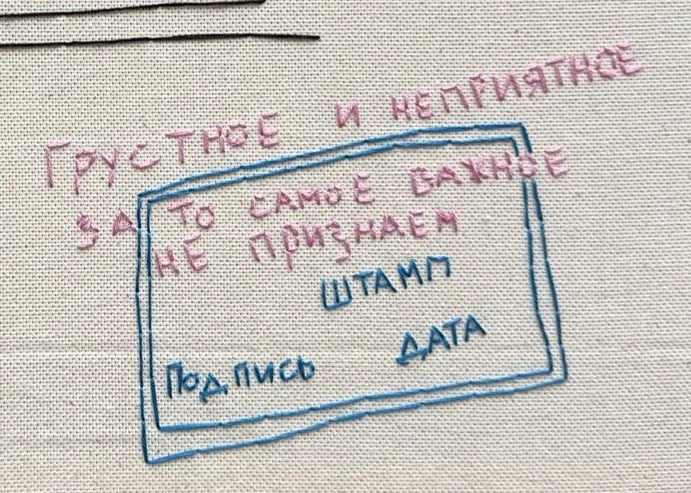 ГРУСТНОЕ И НЕПРИЯТНОЕ
ЗА ТО САМОЕ ВАЖНОЕ
НЕ ПРИЗНАЕМ
ШТАМП
ПОДПИСЬ ДАТА